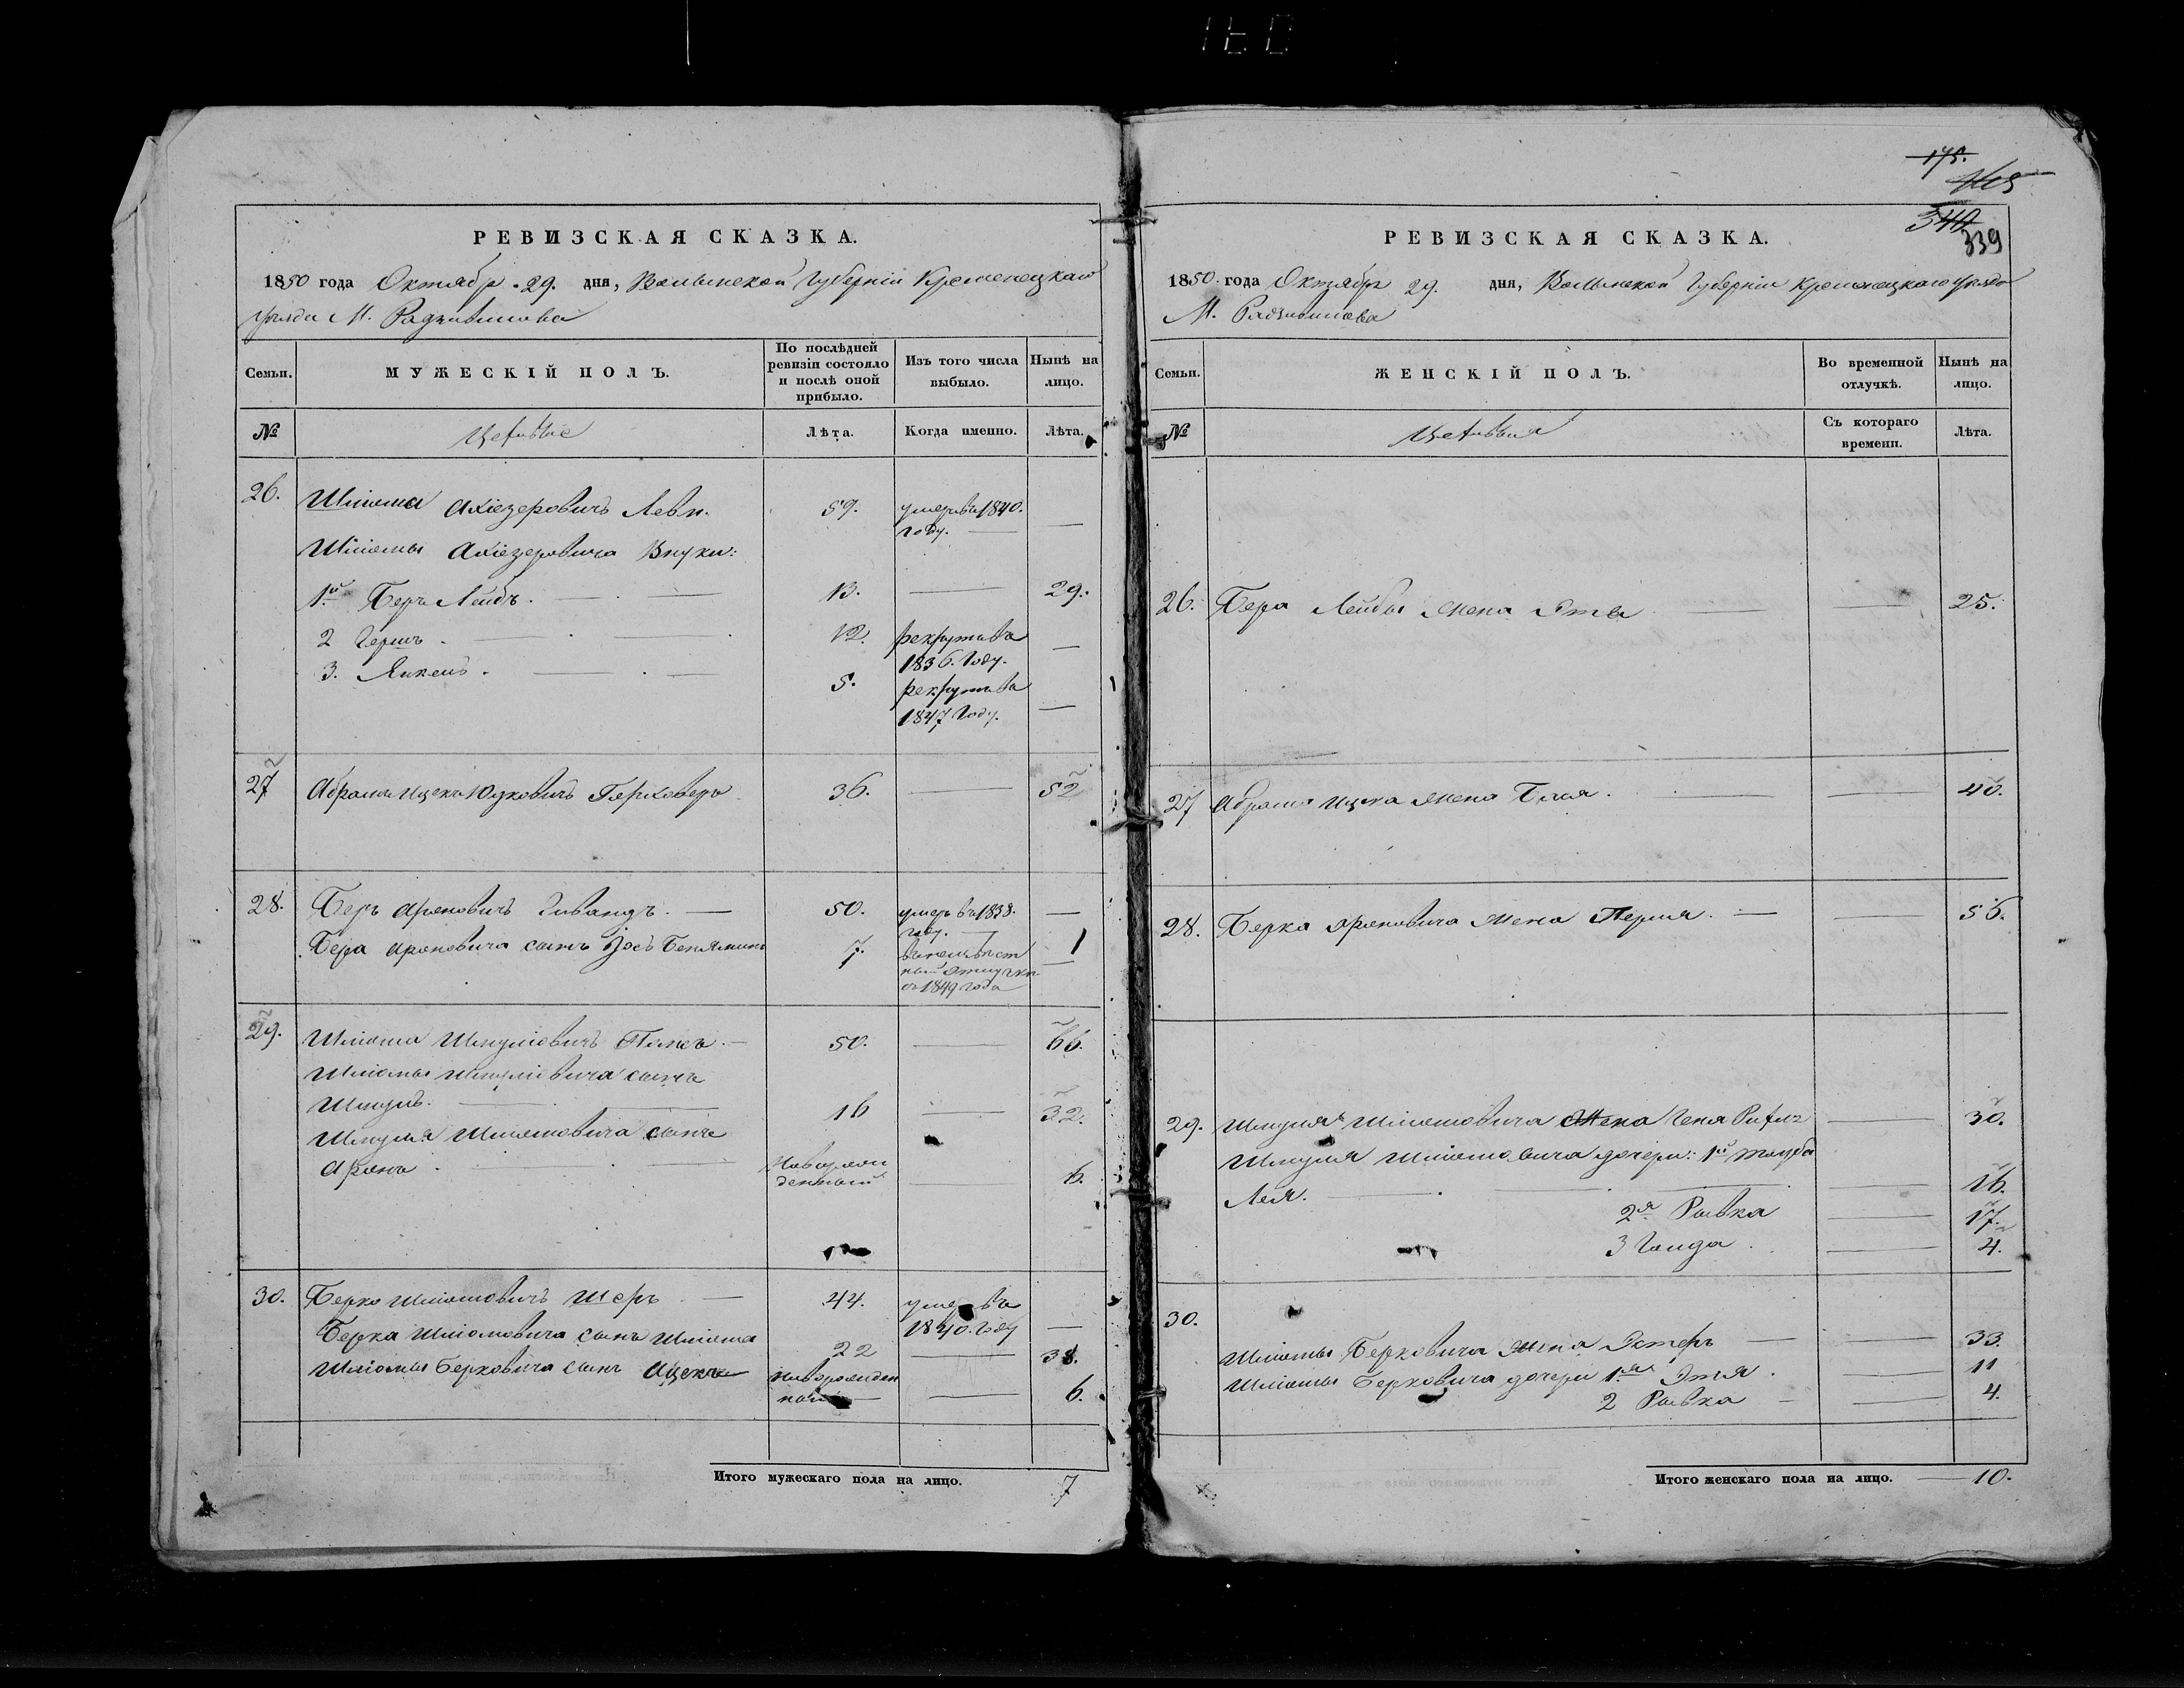 175.
165
340
339
РЕВИЗСКАЯ СКАЗКА.
1850 года Октября 29. дня, Волынской Губерніи Кременецкаго
уезда М. Радзивилова
Семьи.
МУЖЕСКІЙ ПОЛЪ.
По послѣдней ревизіи состояло и послѣ оной прибыло.
Изъ того числа выбыло.
Нынѣ на лицо.
№
Лѣта.
Когда именно.
Лѣта.
26. Шліома Ахіезеровичъ Левн. 59. умеръ въ 1840.
году. —
Шліомы Ахіезеровича Внуки:
1й Беръ Лейбъ. — 13. — 29.
2 Гершъ. — 12. рекрутъ въ
1836. Году. —
3. Янкель. — 5. рекрутъ въ
1847 Году. —
27 Абрамъ Ицекъ Юзковичъ 36. — 52
28. Беръ Ароновичъ — 50. умеръ въ 1838.
году. —
Бера Ароновича сынъ Іосъ Беніаминъ 7. въ неизвѣст 1
ной отлучки —
съ 1849 года
29. Шліома Шмуліовичъ — 50. — 66.
Шліомы Шмуліовича сынъ
Шмуль. — 16 — 32.
Шмуля Шліомовича сынъ
Аронъ. — Новорож
денный — 6.
30. Берко Шліомовичъ Шеръ — 44. умеръ въ
1840. Году —
Берка Шліомовича сынъ Шліома 22 — 38.
Шліомы Берковича сынъ Ицекъ новорожден
ной — — 6.
Итого мужескаго пола на лицо. 7
РЕВИЗСКАЯ СКАЗКА.
1850. года Октября 29. дня, Волынской Губерніи Кременецкаго уезда
М. Радзивилова
Семьи.
ЖЕНСКІЙ ПОЛЪ.
Во временной отлучкѣ.
Нынѣ на лицо.
№
Съ котораго времени.
Лѣта.
26. Бера Лейбы жена — — 25.
27 Абрама Ицка жена — 40.
28. Берка Ароновича жена Перля. — — 56.
29. Шмуля Шліомовича жена — 30.
Шмуля Шліомовича дочери: 1я Тауба
Лея. — — 16.
2я Рывка — 17.
3 Гольда — 4.
30.
Шліомы Берковича жена Эстеръ — — 33.
Шліомы Берковича дочери 1я Этя. 11
2 Рывка — — 4.
Итого женскаго пола на лицо. — 10.